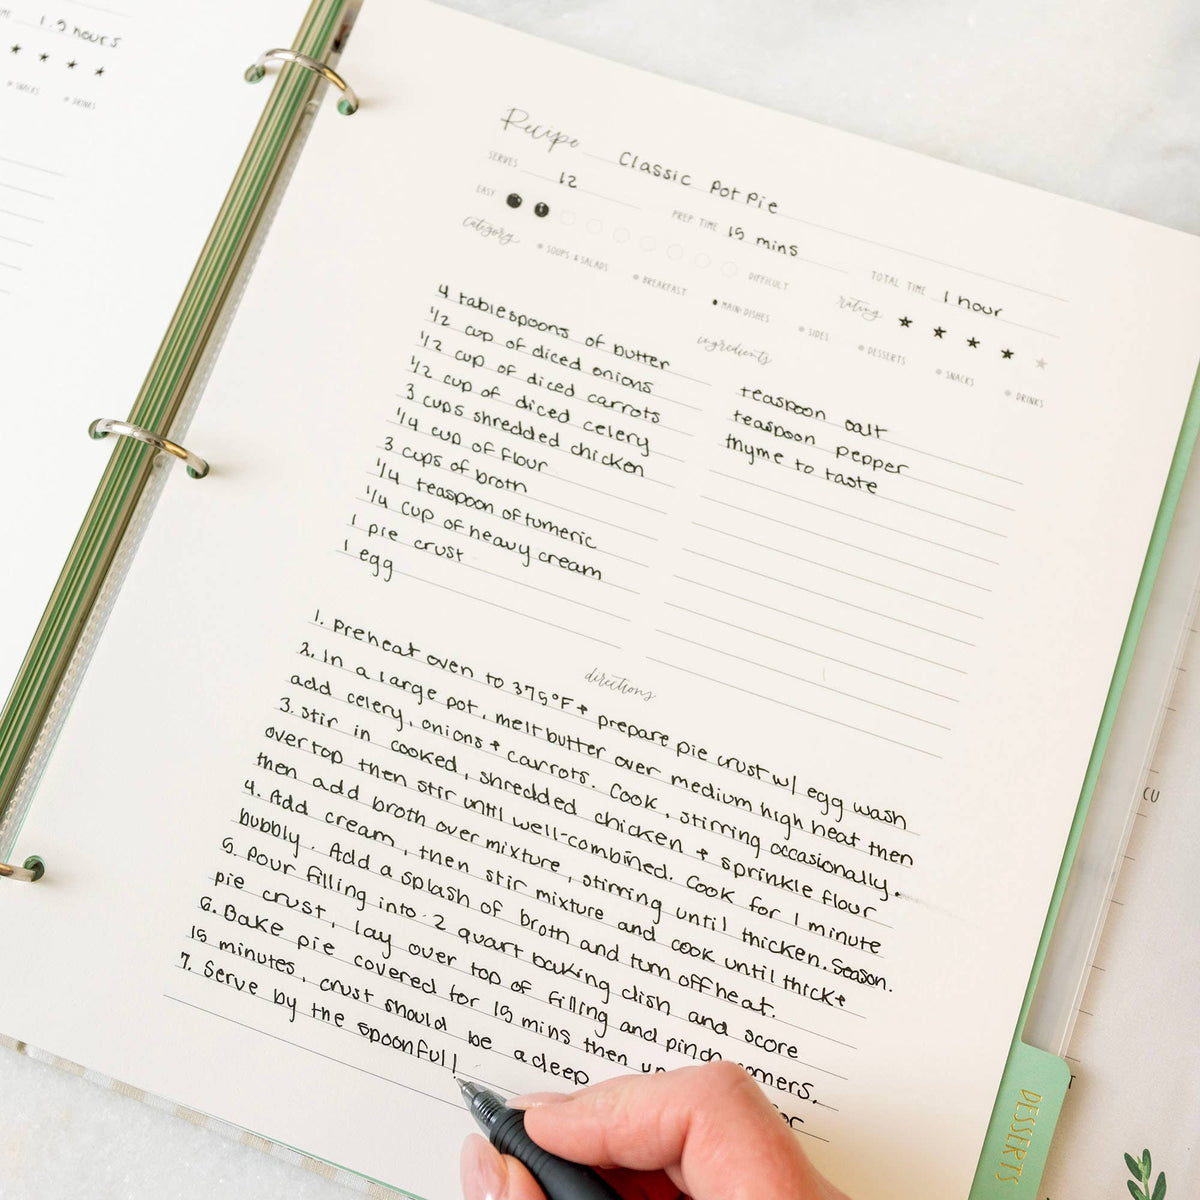 1.5 hours
SNACKS DRINKS
Recipe Classic Pot Pie
SERVES 12 PREP TIME 15 mins TOTAL TIME 1 hour
EASY DIFFICULT rating
category SOUPS & SALADS BREAKFAST MAIN DISHES SIDES DESSERTS SNACKS DRINKS
ingredients
4 tablespoons of butter
1/2 cup of diced onions
1/2 cup of diced carrots
1/2 cup of diced celery
3 cups shredded chicken
1/4 cup of flour
3 cups of broth
1/4 teaspoon of tumeric
1/4 cup of heavy cream
1 pie crust
1 egg
teaspoon salt
teaspoon pepper
thyme to taste
directions
1. Preheat oven to 375°F + prepare pie crust w/ egg wash
2. In a large pot, melt butter over medium high heat then
add celery, onions + carrots. Cook, stirring occasionally.
3. Stir in cooked, shredded chicken + sprinkle flour
over top then stir until well-combined. Cook for 1 minute
then add broth over mixture, stirring until thicken. Season.
4. Add cream, then stir mixture and cook until thick +
bubbly. Add a splash of broth and turn off heat.
5. Pour filling into 2 quart baking dish and score
pie crust, lay over top of filling and pinch corners.
6. Bake pie covered for 15 mins then for
15 minutes, crust should be a deep
7. Serve by the spoonful!
DESSERTS
CU